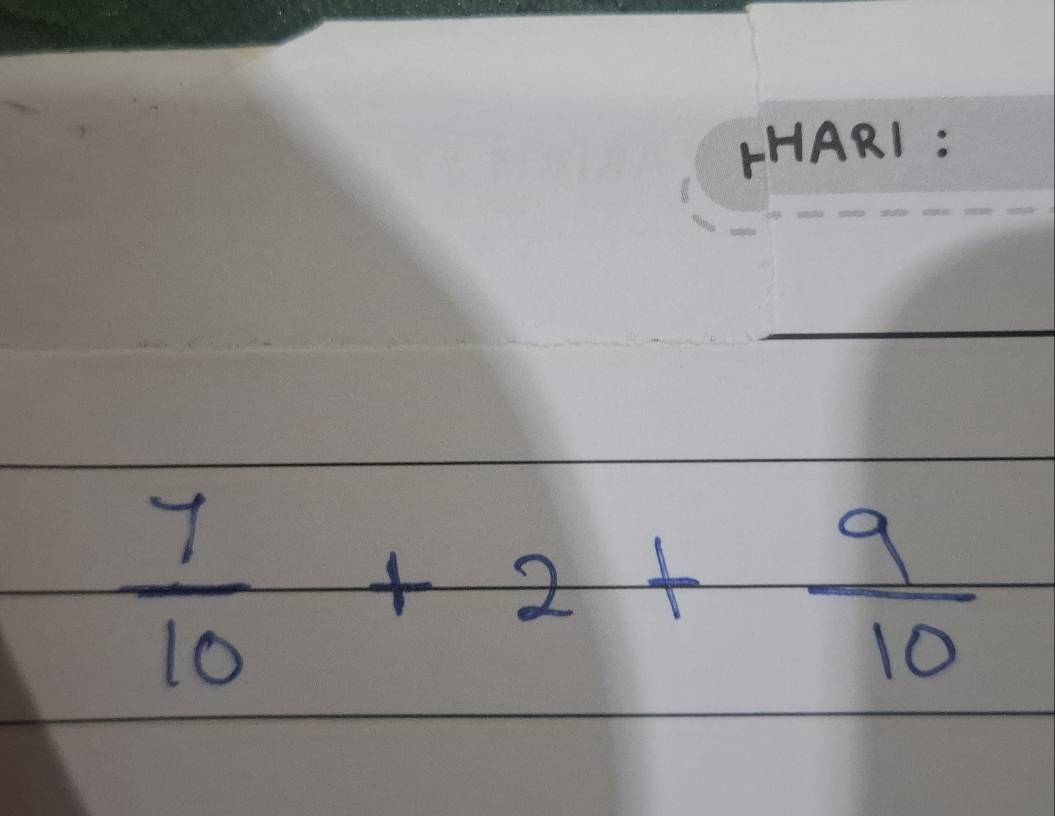 HARI :
7/10 + 2 + 9/10